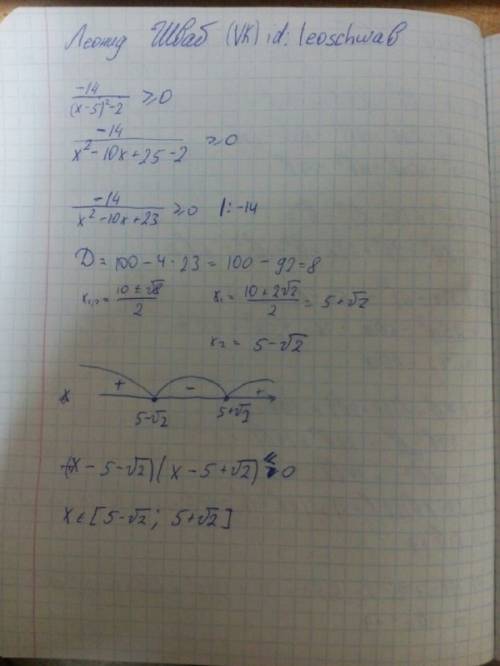 Леонид Шваб (VK) id: leoschwab
-14/((x-5)²-2) ≥0
-14/(x²-10x+25-2) ≥0
-14/(x²-10x+23) ≥0 |:-14
D=100-4·23=100-92=8
x₁,₂=(10±√8)/2 x₁=(10+2√2)/2=5+√2
x₂=5-√2
+ - +
5-√2 5+√2
(x-5-√2)(x-5+√2)≤0
x∈[5-√2; 5+√2]